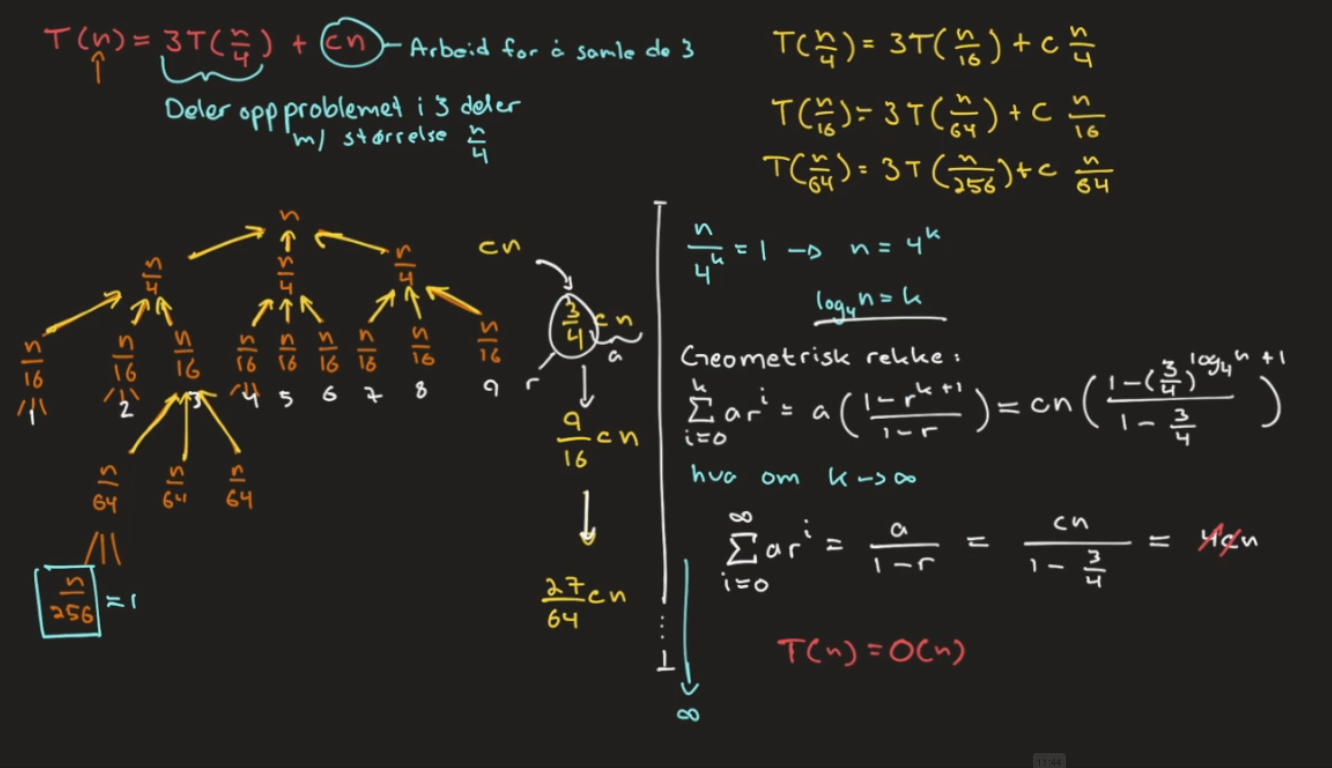 T(n) = 3T(n/4) + cn – Arbeid for å samle de 3
Deler opp problemet i 3 deler
m/ størrelse n/4
T(n/4) = 3T(n/16) + c n/4
T(n/16) = 3T(n/64) + c n/16
T(n/64) = 3T(n/256) + c n/64
n
n/4 n/4 n/4
n/16 n/16 n/16 n/16 n/16 n/16 n/16 n/16 n/16
1 2 3 4 5 6 7 8 9
n/64 n/64 n/64
n/256 = 1
cn
3/4 cn
r a
9/16 cn
27/64 cn
n/4^k = 1 → n = 4^k
log₄n = k
Geometrisk rekke:
∑_{i=0}^{k} ar^i = a((1-r^{k+1})/(1-r)) = cn((1-(3/4)^{log₄n+1})/(1-3/4))
hva om k → ∞
∑_{i=0}^{∞} ar^i = a/(1-r) = cn/(1-3/4) = 4cn
T(n) = O(n)
∞
11:44